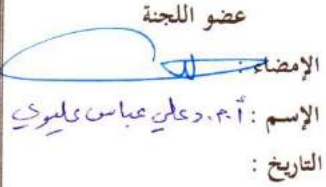 عضو اللجنة
الإمضاء :
الإسم : أ.م.د علي عباس عليوي
التاريخ :